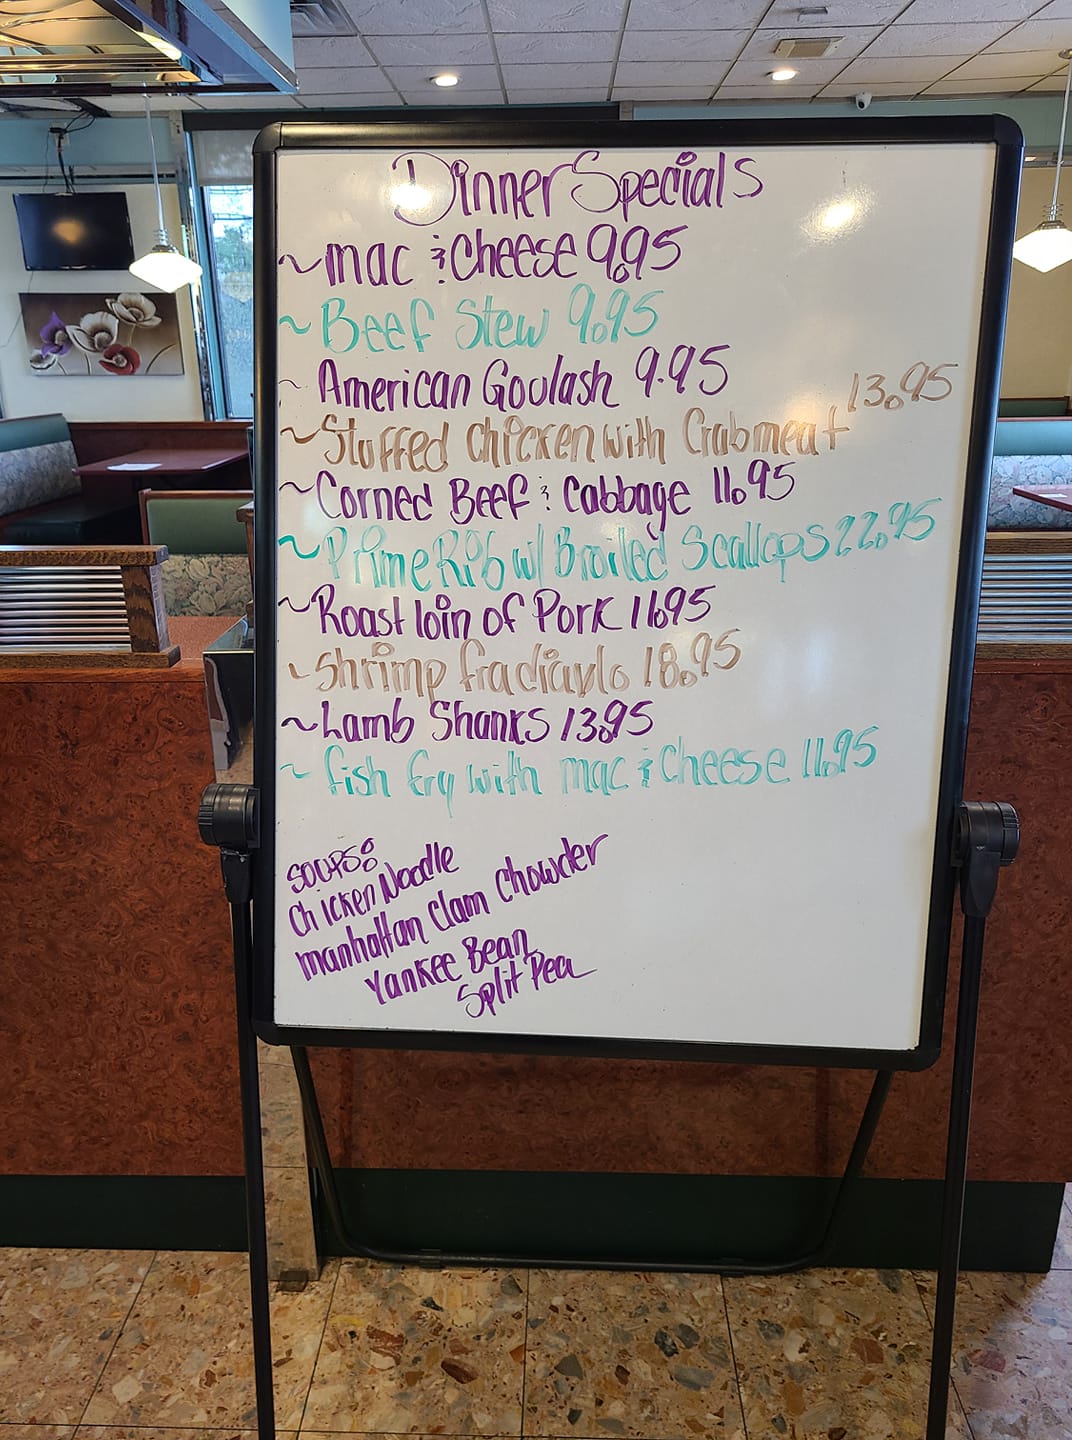 Dinner Specials
~ mac & Cheese 9.95
~ Beef Stew 9.95
~ American Goulash 9.95
~ Stuffed Chicken with Crabmeat 13.95
~ Corned Beef & Cabbage 11.95
~ Prime Rib w/ Broiled Scallops 22.95
~ Roast loin of Pork 11.95
~ Shrimp fradiavlo 18.95
~ Lamb Shanks 13.95
~ fish fry with mac & Cheese 11.95
SOUPS:
Chicken Noodle
manhattan Clam Chowder
Yankee Bean
Split Pea